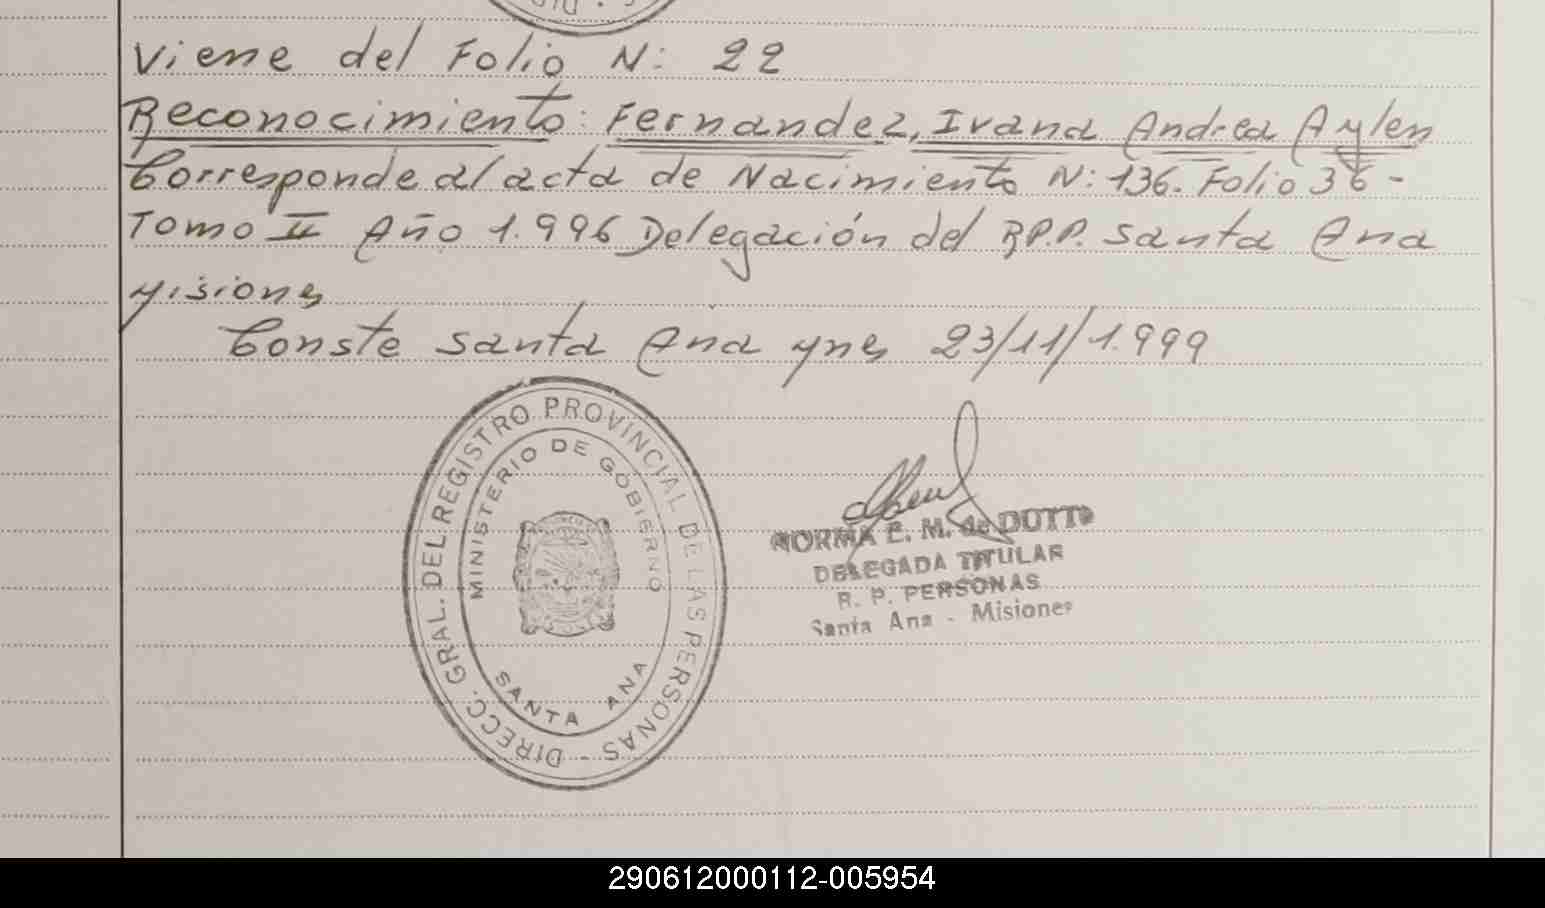 Viene del Folio N: 22
Reconocimiento: Fernandez, Ivana Andrea Aylen
Corresponde al acta de Nacimiento N: 136. Folio 36 -
Tomo II Año 1.996 Delegación del R.P.P. Santa Ana
Misiones
Conste Santa Ana Mnes 23/11/1.999
DIRECC. GRAL. DEL REGISTRO PROVINCIAL DE LAS PERSONAS -
MINISTERIO DE GOBIERNO
SANTA ANA
NORMA E. M. de DOTTO
DELEGADA TITULAR
R. P. PERSONAS
Santa Ana - Misiones
290612000112-005954